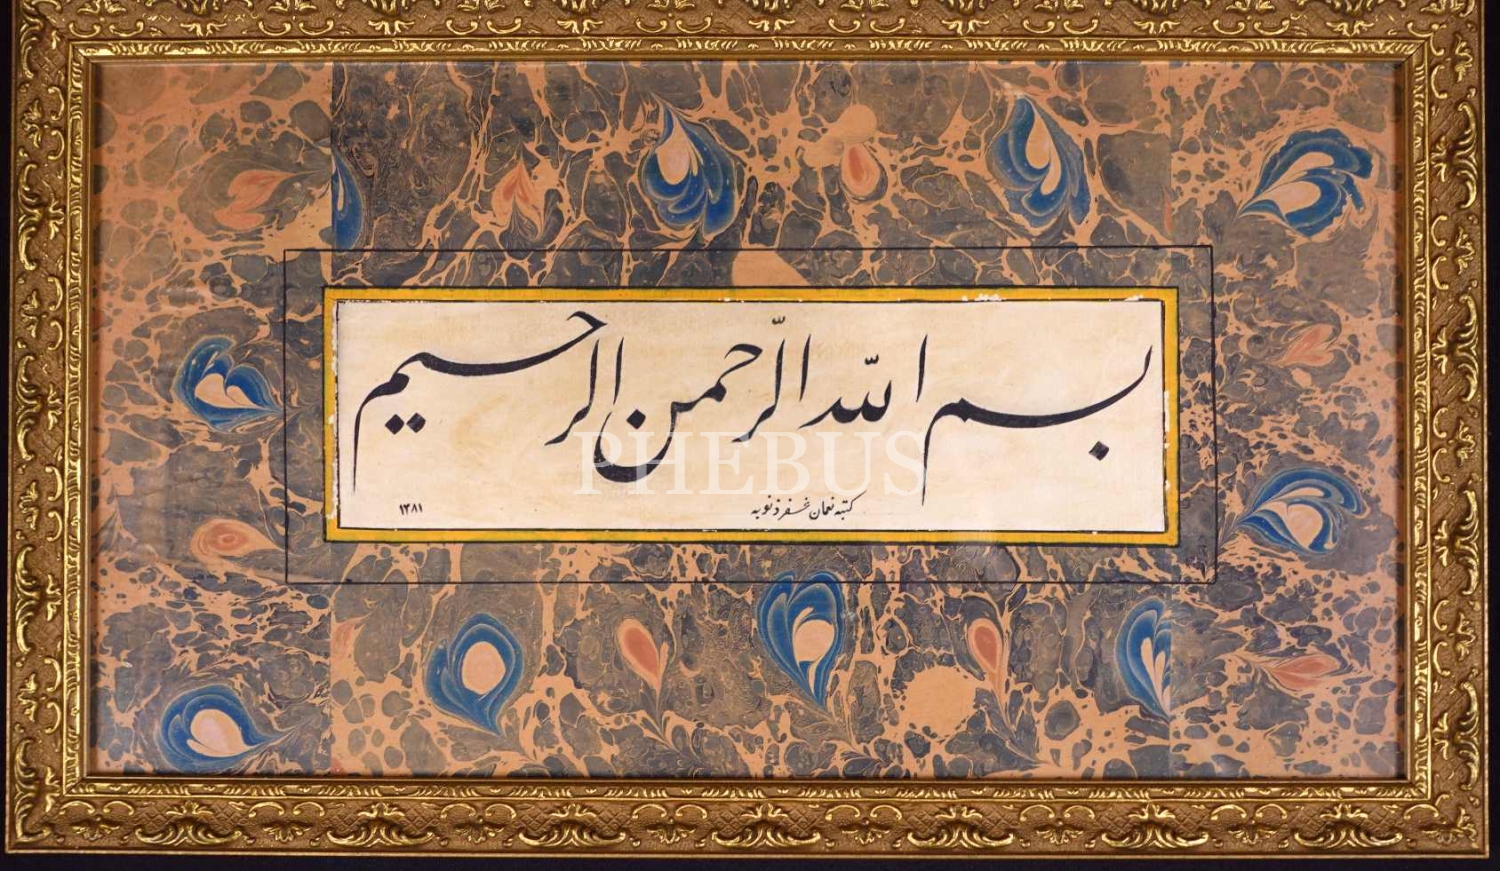 بسم الله الرّحمن الرحيم
PHEBUS
كتبه نعمان غفر ذنوبه
١٣٨١